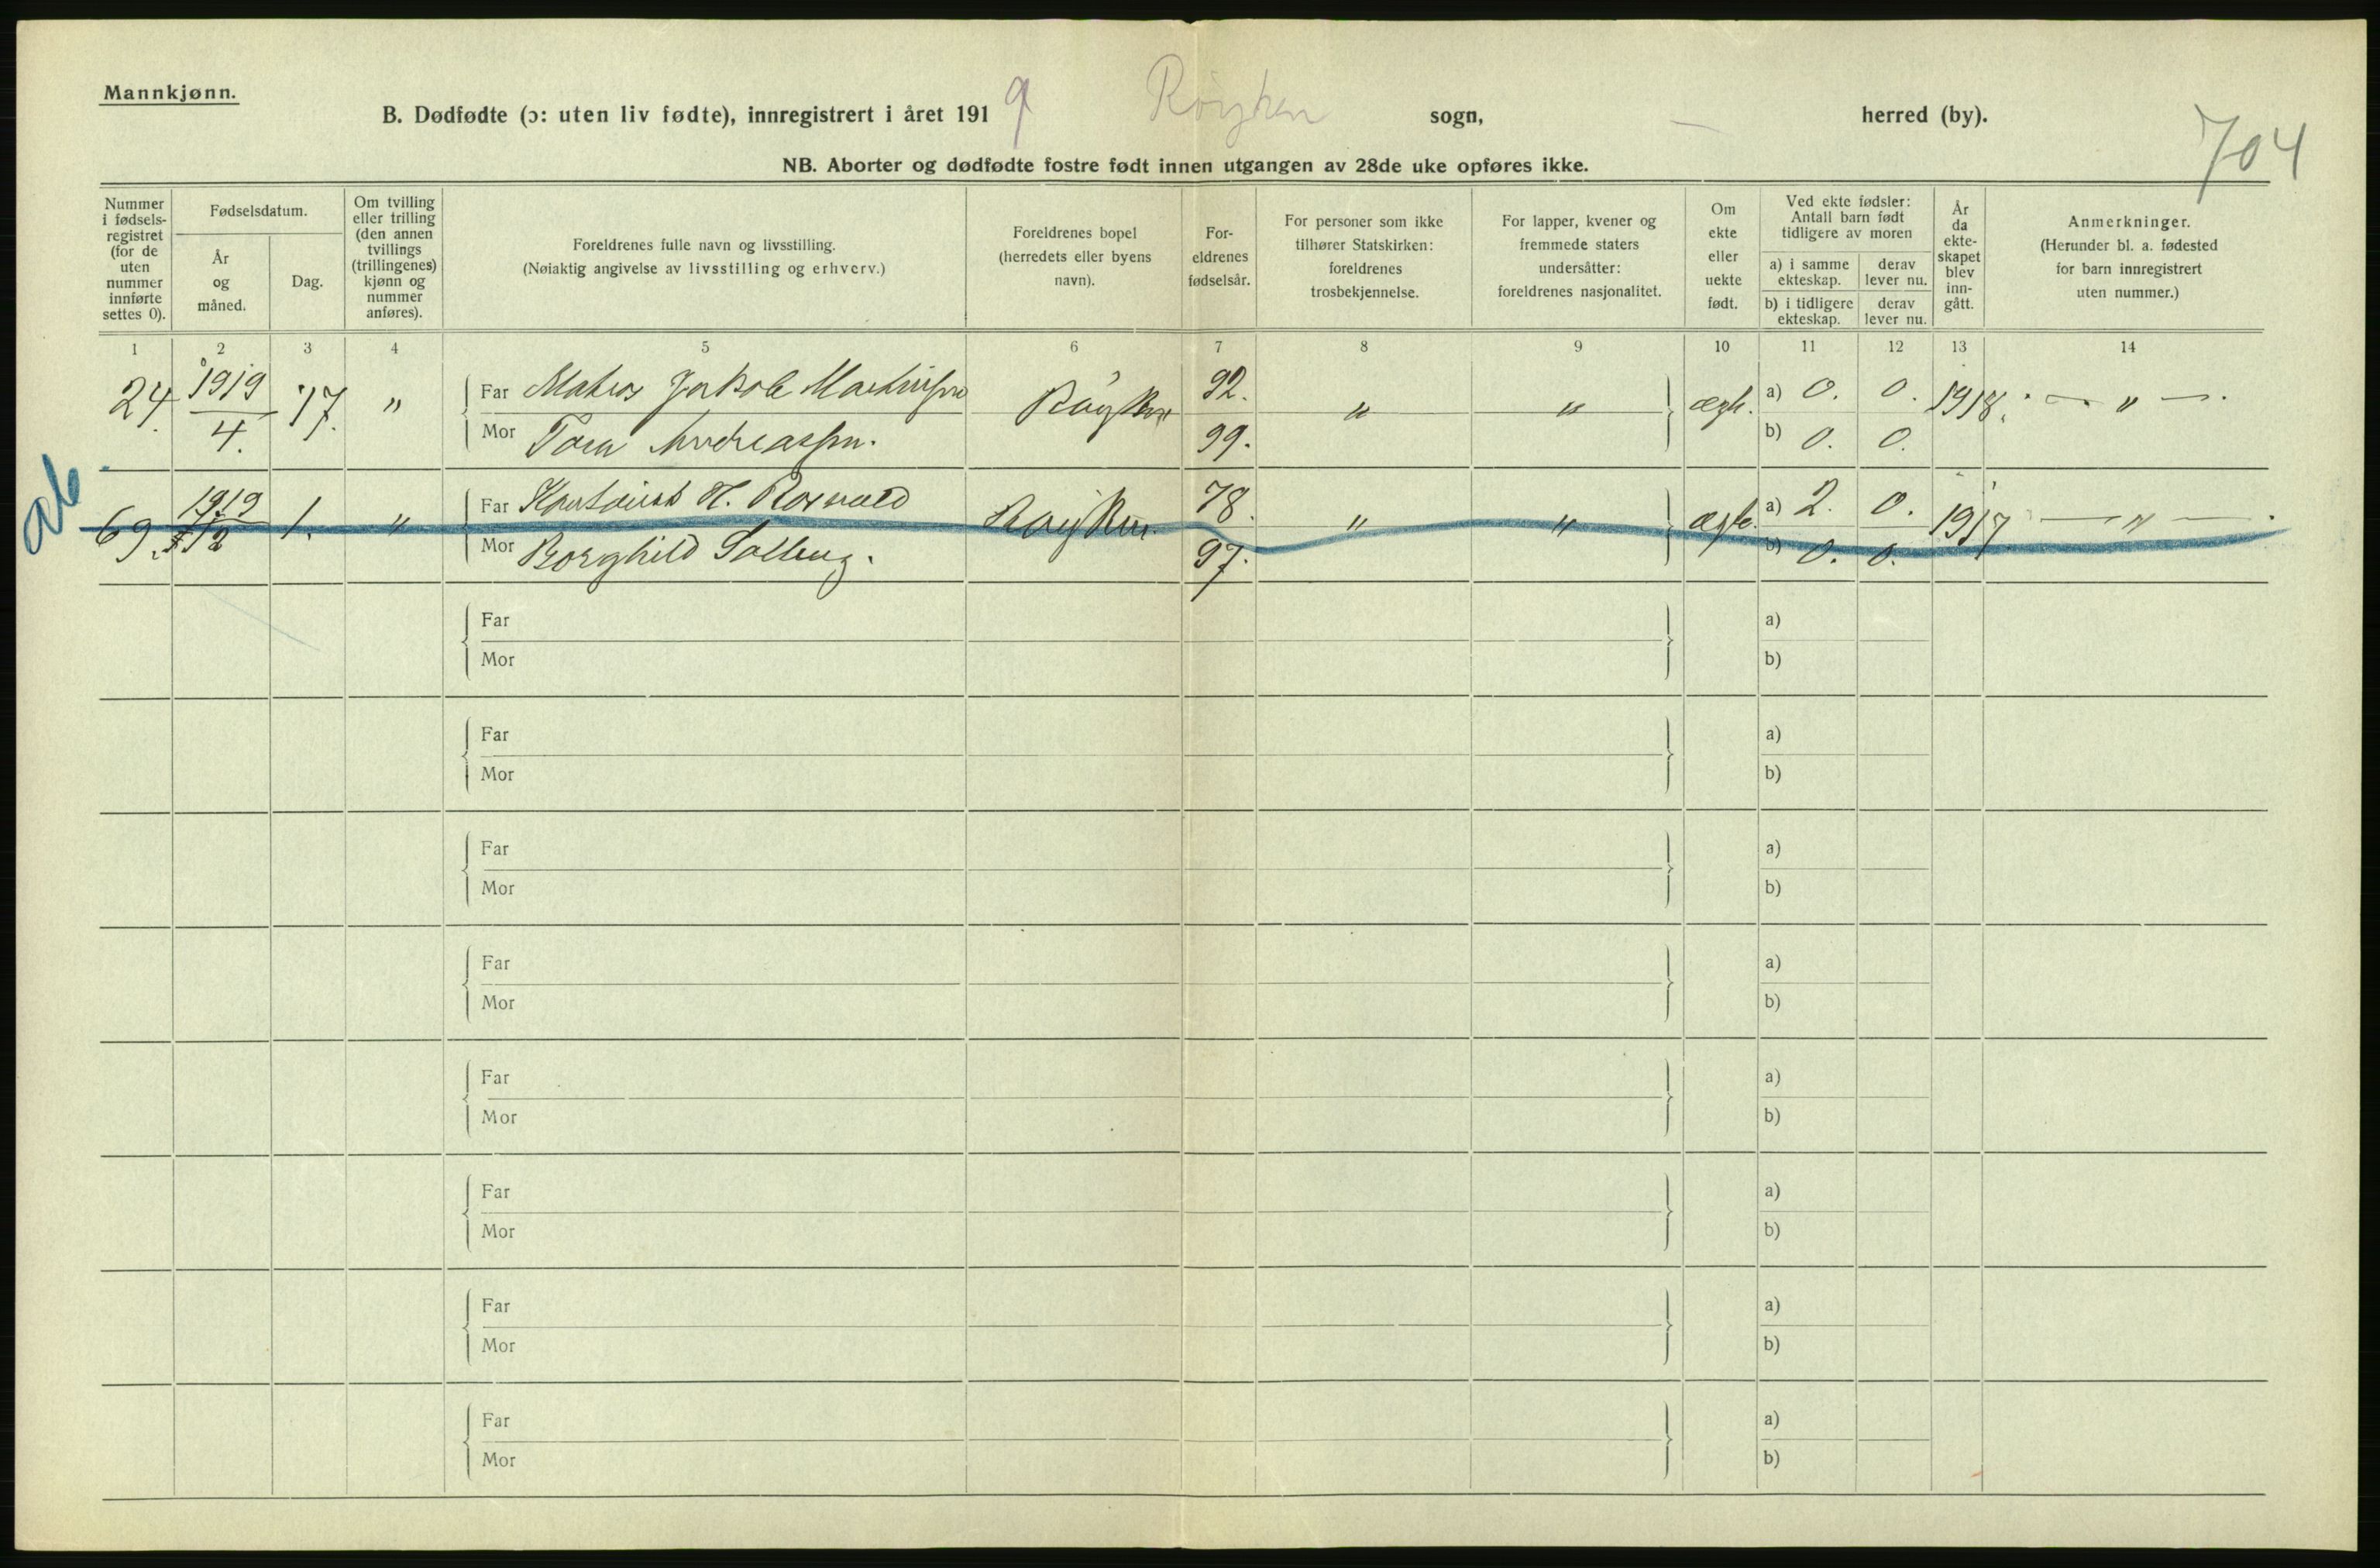 Mannkjønn.
B. Dødfødte (ɔ: uten liv fødte), innregistrert i året 1919 Røyken sogn, — herred (by).
704
NB. Aborter og dødfødte fostre født innen utgangen av 28de uke opføres ikke.
Nummer i fødsels-registret (for de uten nummer innførte settes 0).
Fødselsdatum.
År og måned.
Dag.
Om tvilling eller trilling (den annen tvillings (trillingenes) kjønn og nummer anføres).
Foreldrenes fulle navn og livsstilling.
(Nøiaktig angivelse av livsstilling og erhverv.)
Foreldrenes bopel (herredets eller byens navn).
For-eldrenes fødselsår.
For personer som ikke tilhører Statskirken: foreldrenes trosbekjennelse.
For lapper, kvener og fremmede staters undersåtter: foreldrenes nasjonalitet.
Om ekte eller uekte født.
Ved ekte fødsler: Antall barn født tidligere av moren
a) i samme ekteskap.
derav lever nu.
b) i tidligere ekteskap.
derav lever nu.
År da ekte-skapet blev inn-gått.
Anmerkninger.
(Herunder bl. a. fødested for barn innregistrert uten nummer.)
1 2 3 4 5 6 7 8 9 10 11 12 13 14
24. 1919 4. 17. " Far Matros Jakob Martinsen Røyken 92. " " ægte. a) 0. 0. 1918. — " —
Mor Tora Andreassen. 99. b) 0. 0.
69. 1919 12 1. " Far H. Røyken. 78. " " ægte. a) 2. 0. 1917. — " —
Mor Borghild Solberg. 97. b) 0. 0.
Far a)
Mor b)
Far a)
Mor b)
Far a)
Mor b)
Far a)
Mor b)
Far a)
Mor b)
Far a)
Mor b)
Far a)
Mor b)
Far a)
Mor b)